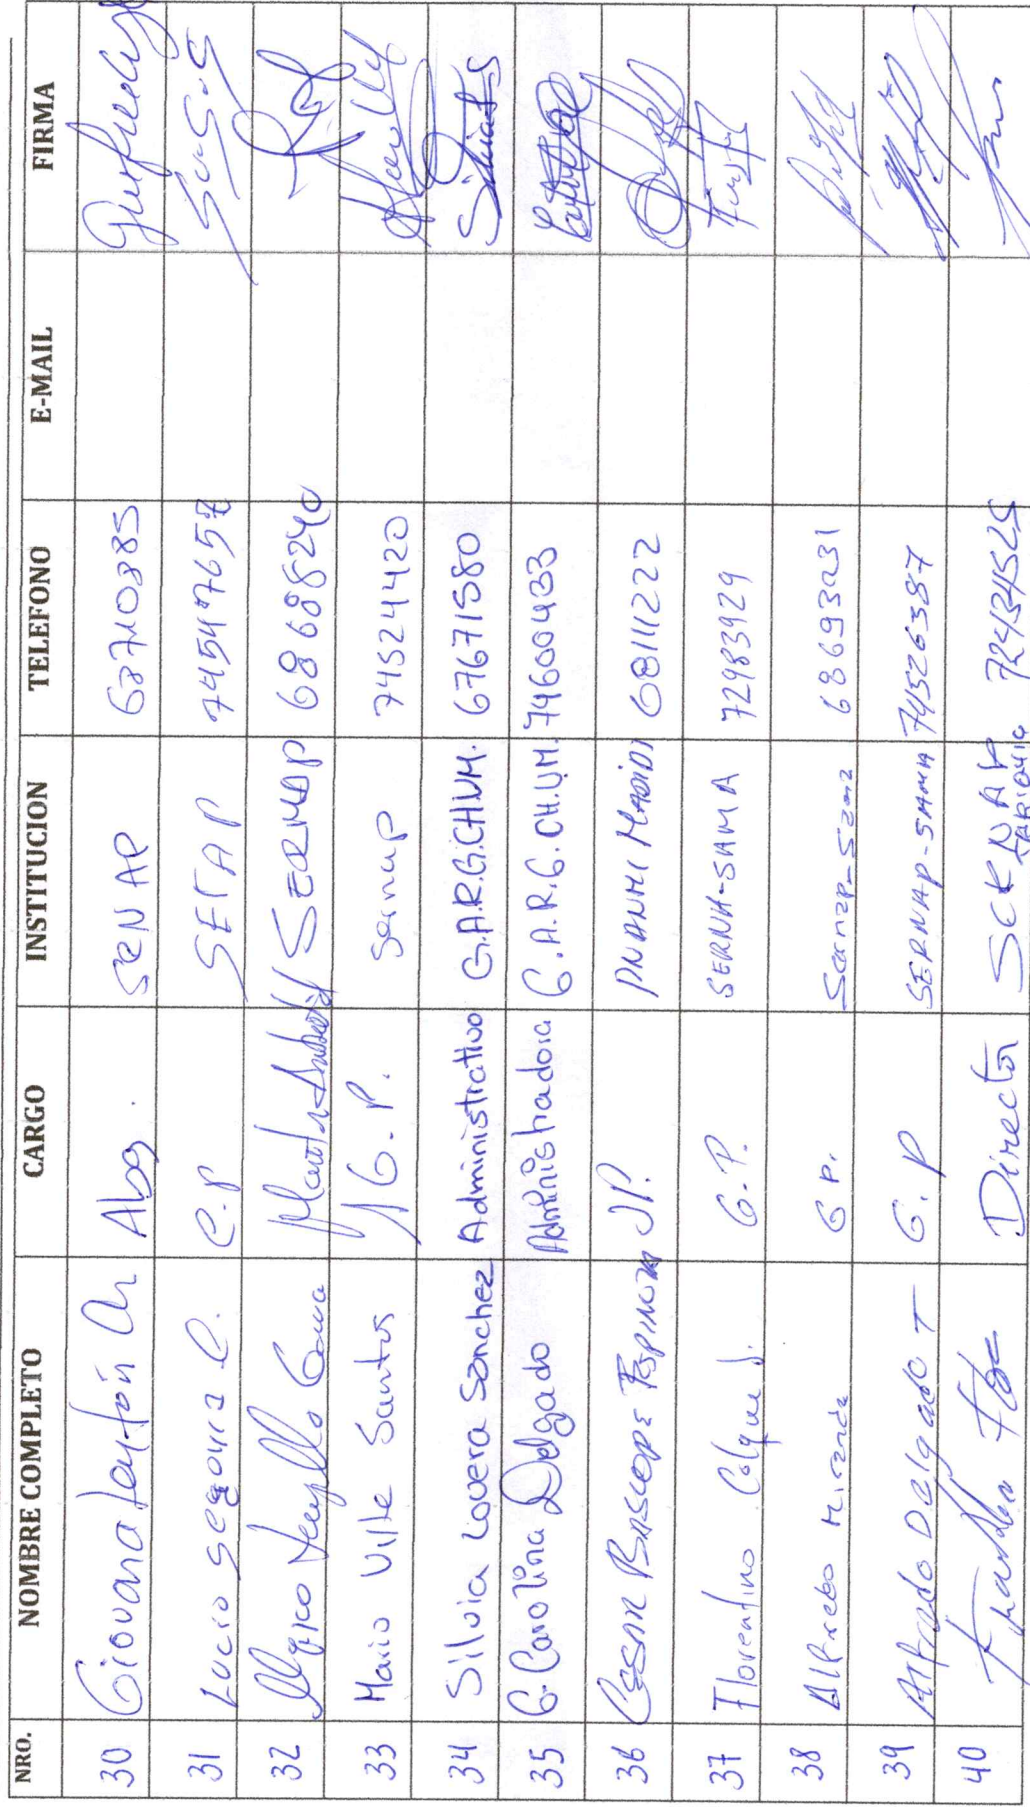 NRO. NOMBRE COMPLETO CARGO INSTITUCION TELEFONO E-MAIL FIRMA
30 Giovana Leytón Abg. SERNAP 68710885
31 Lucio Segovia C. C.P SETAP
32 SERNAP 68688240
33 Mario Vilte Santos G.P. Sernap 74524420
34 Silvia Lovera Sanchez Administrativo G.A.R.G.CH.V.M. 67671580
35 G. Carolina Delgado Administradora G.A.R.G.CH.V.M. 74600433
36 Cesar Bascope Espinoza JP. PNANMI MADIDI 68111222
37 Florentino Colque J. G.P. SERNA-SAMA 72983929
38 Alfredo Miranda G P. Sernap-Sama
39 Alfredo Delgado T G. P SERNAP-SAMA 74526387
40 Director SERNAP 72434525
TARIQUIA